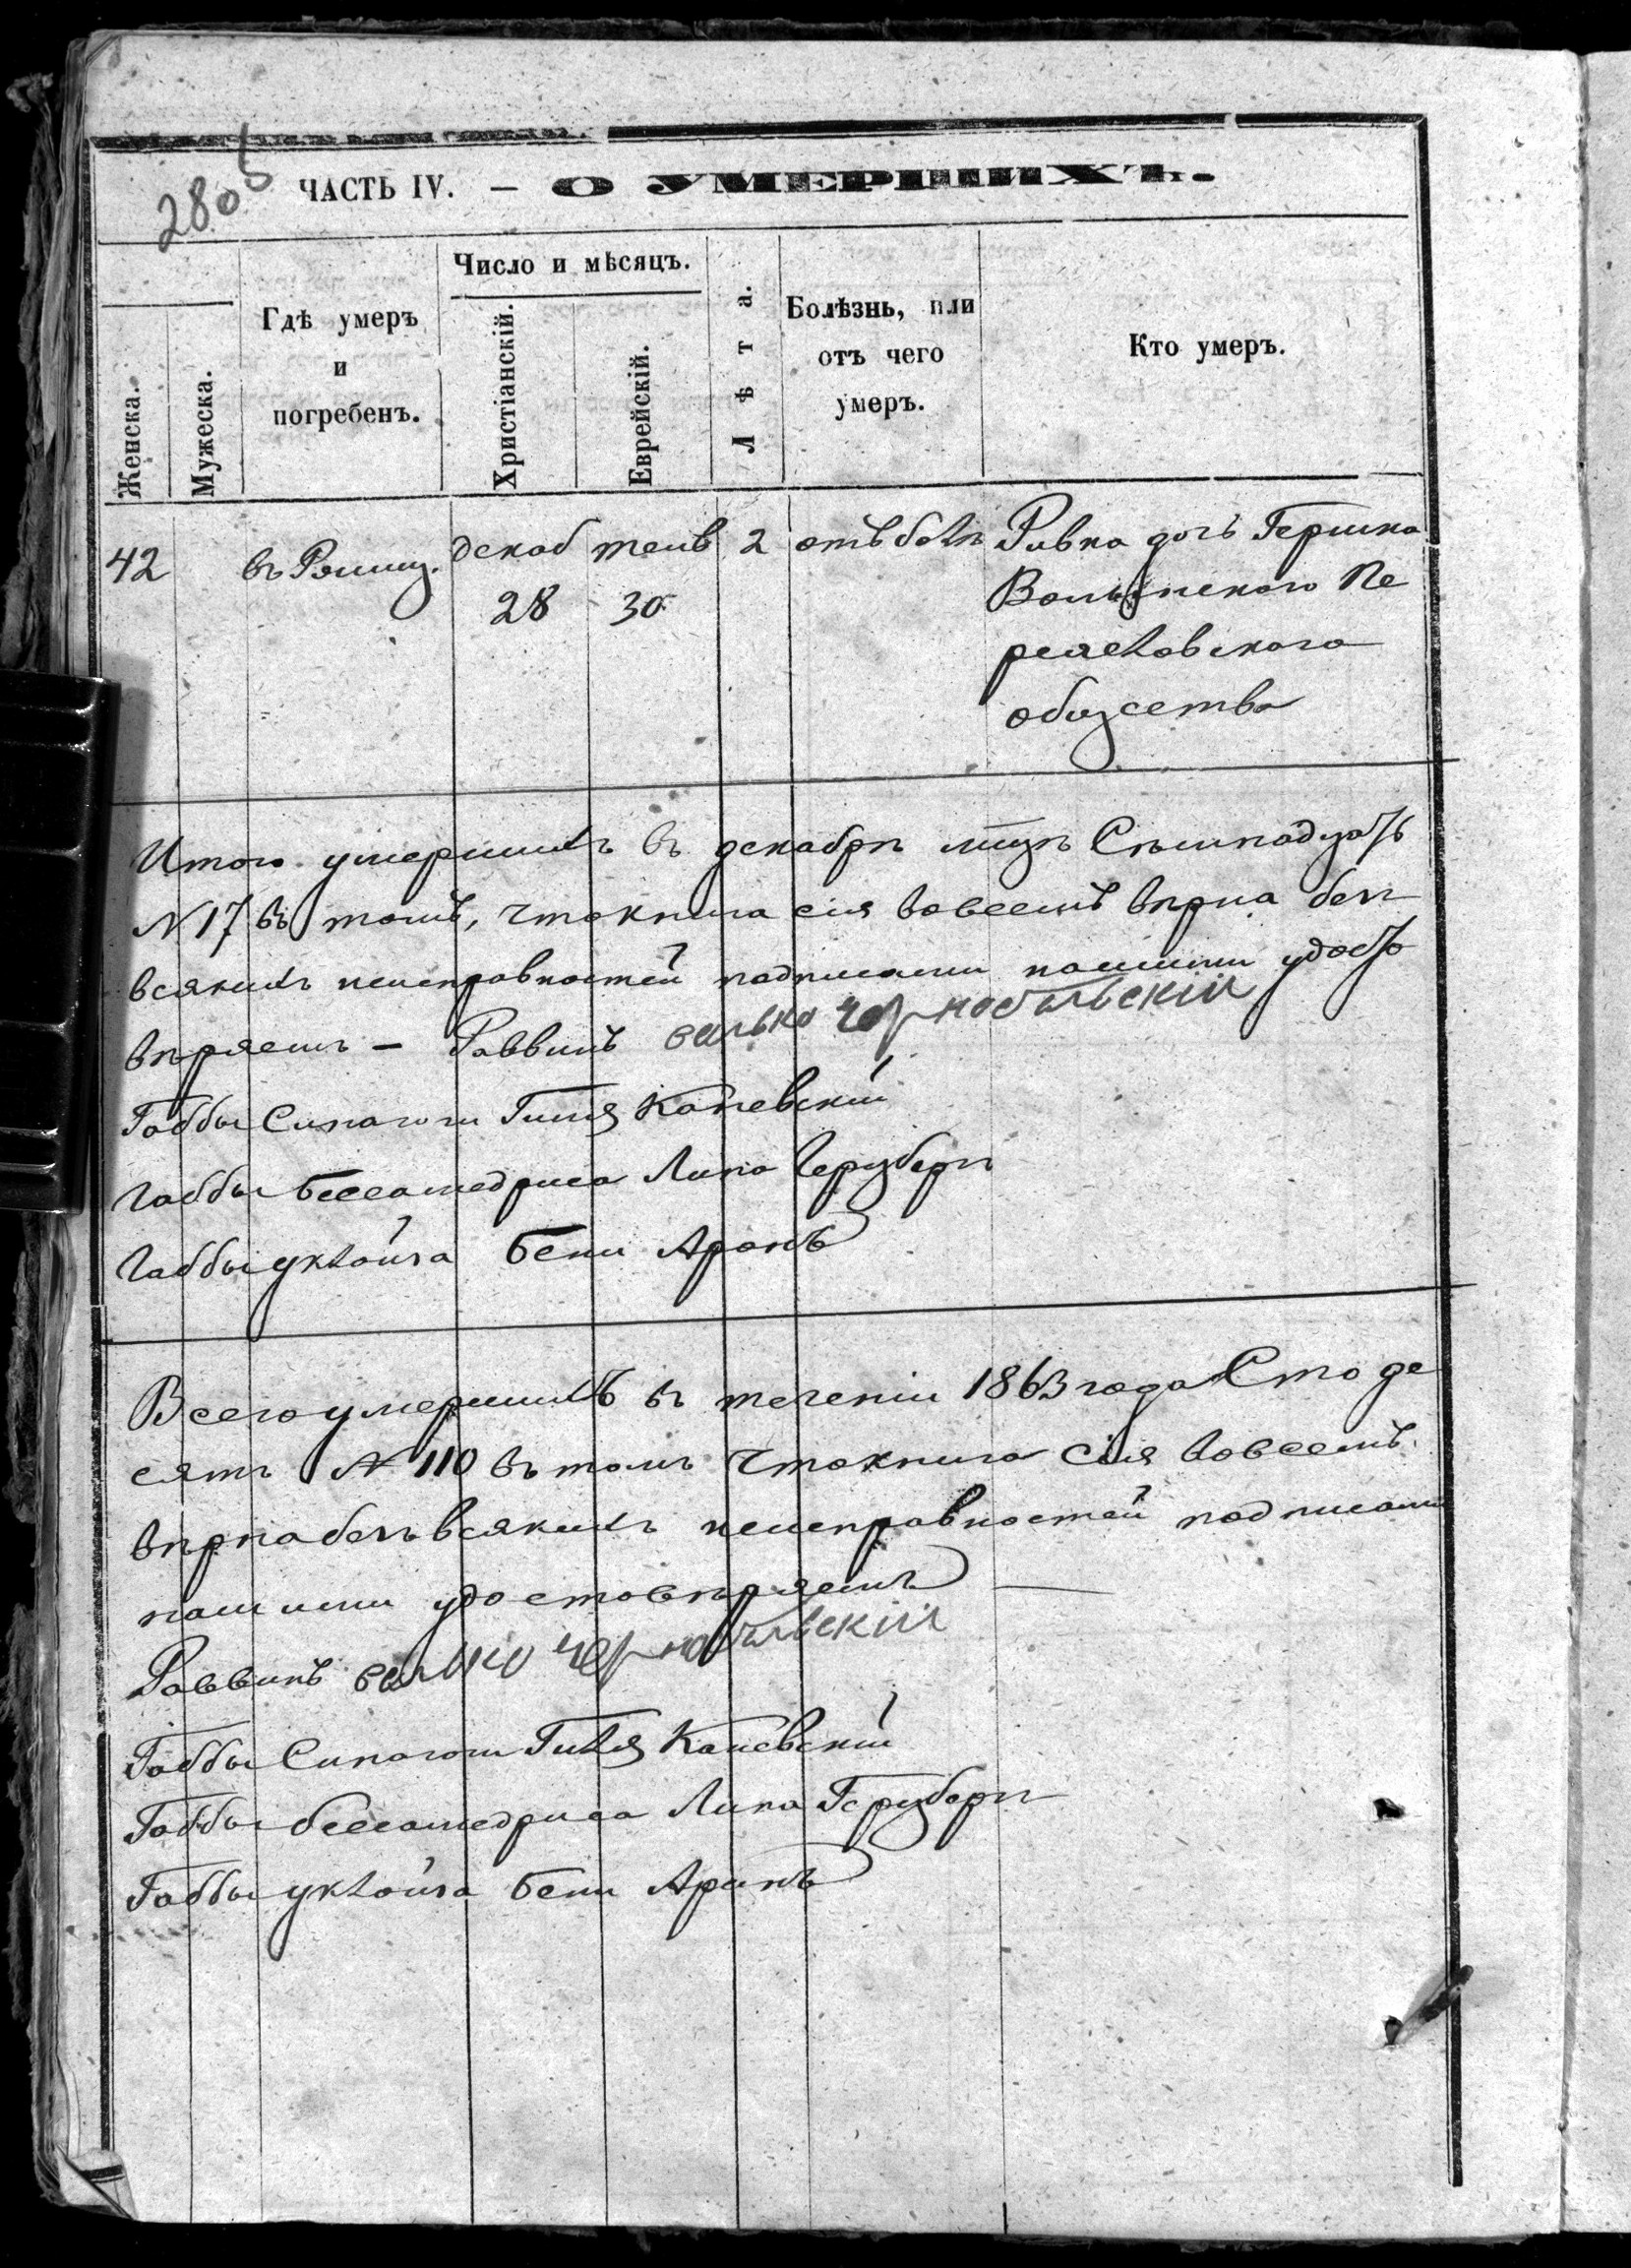 280б
ЧАСТЬ IV. — О УМЕРШИХЪ.
Женска.
Мужеска.
Гдѣ умеръ
и
погребенъ.
Число и мѣсяцъ.
Христіанскій.
Еврейскій.
Лѣта.
Болѣзнь, или
отъ чего
умеръ.
Кто умеръ.
42 въ декаб 2 отъ Ривка дочь Гершка
28 30 Волынскаго Пе
реяславскаго
общества
Итого умершихъ въ декабрѣ мцѣ Сѣмнадцать
№ 17 въ томъ, что книга сія вовсемъ вѣрна безъ
всякихъ неисправностей подписами нашими удосто
вѣряемъ — Раввинъ Чернобыльскій
Габбы Синагоги Каневскій
Габбы бесгамедриса Липа
Габбы уклойза Бени Аронъ
Всего умершихъ въ теченіи 1863 года Сто де
сять № 110 въ томъ что книга сія вовсемъ
вѣрна безъ всякихъ неисправностей подписами
нашими удостовѣряемъ —
Раввинъ Чернобыльскій
Габбы Синагоги Каневскій
Габбы бесгамедриса Липа
Габбы уклойза Бени Аронъ